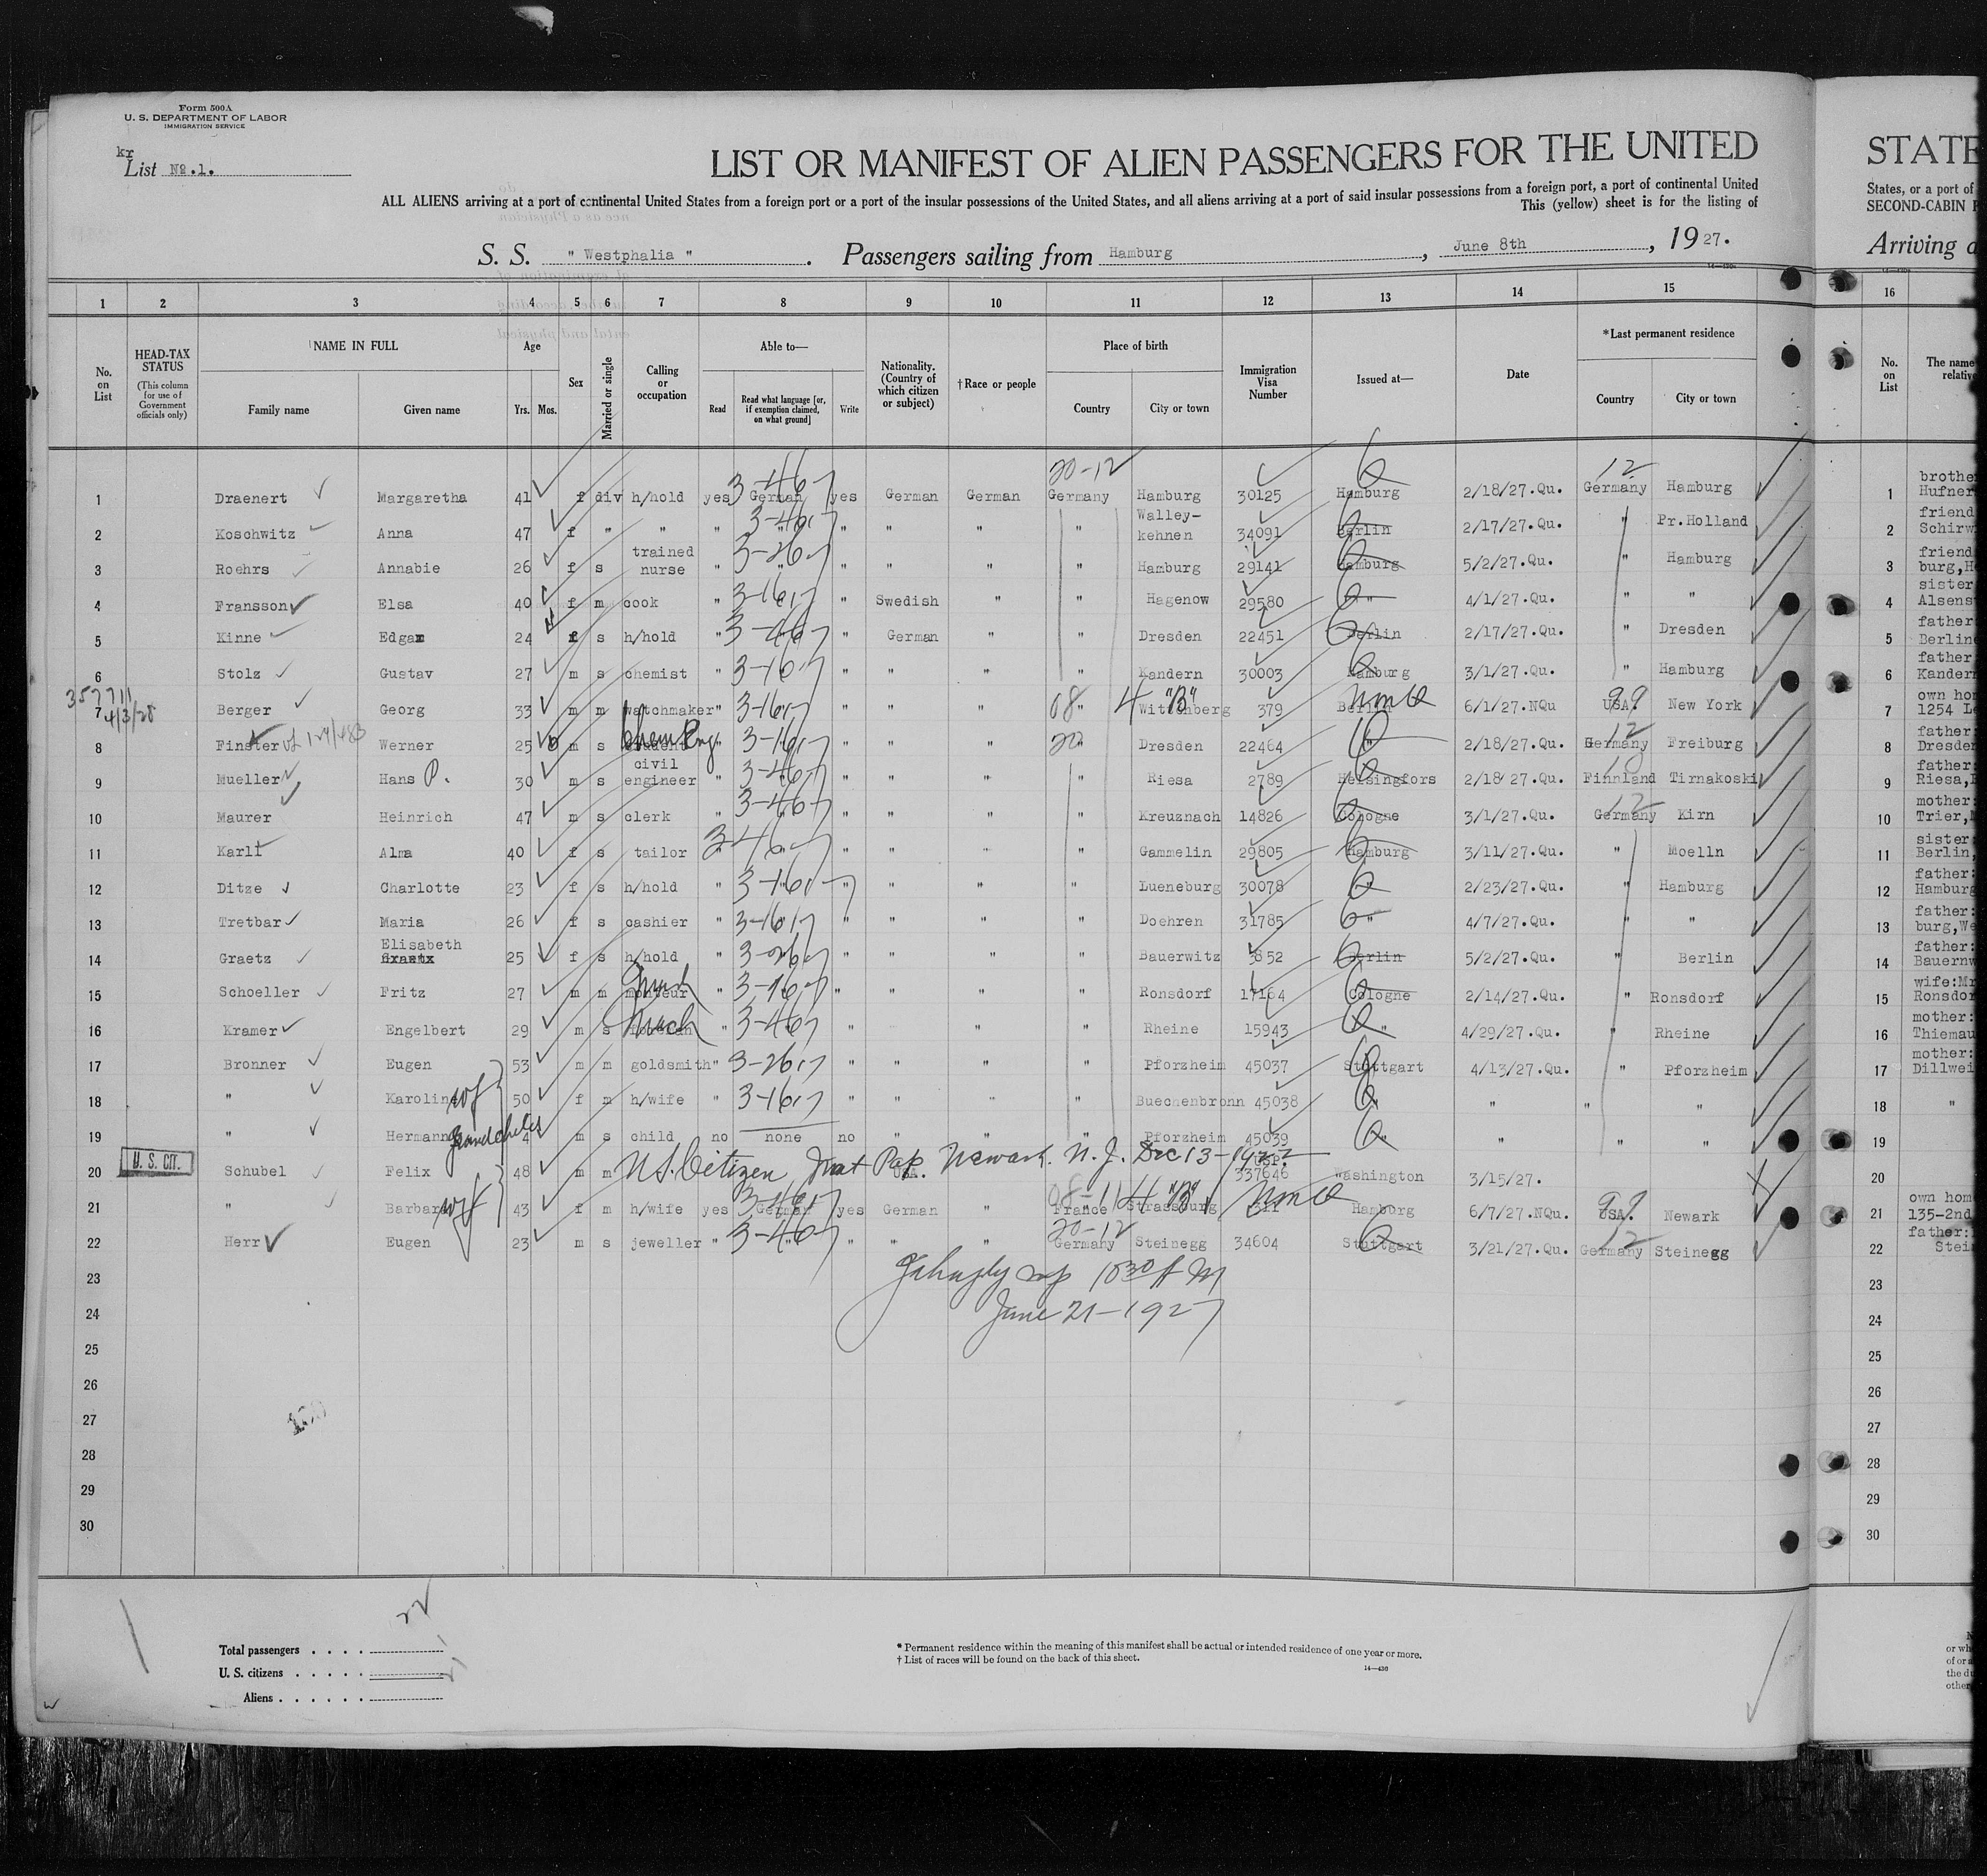 Form 500A
U. S. DEPARTMENT OF LABOR
IMMIGRATION SERVICE
kr
List No.1.
LIST OR MANIFEST OF ALIEN PASSENGERS FOR THE UNITED
STATE
ALL ALIENS arriving at a port of continental United States from a foreign port or a part of the insular possessions of the United States, and all aliens arriving at a port of said insular possessions from a foreign port, a port of continental United
This (yellow) sheet is for the listing of
States, or a port of
SECOND-CABIN
S. S. " Westphalia ". Passengers sailing from Hamburg, June 8th, 1927.
Arriving a
1 2 3 4 5 6 7 8 9 10 11 12 13 14 15 16
No. on List
HEAD-TAX STATUS
(This column for use of Government officials only)
NAME IN FULL
Family name Given name
Age
Yrs. Mos.
Sex
Married or single
Calling or occupation
Able to—
Read
Read what language [or, if exemption claimed, on what ground]
Write
Nationality. (Country of which citizen or subject)
†Race or people
Place of birth
Country City or town
Immigration Visa Number
Issued at—
Date
*Last permanent residence
Country City or town
No. on List
The name
relative
20-12 12
1 Draenert Margaretha 41 f div h/hold yes German yes German German Germany Hamburg 30125 Hamburg 2/18/27.Qu. Germany Hamburg 1 brothe Hufner
2 Koschwitz Anna 47 f " " " " " " " " Walley-kehnen 34091 Berlin 2/17/27.Qu. " Pr.Holland 2 friend Schirw
3 Roehrs Annabie 26 f s trained nurse " " " " " " Hamburg 29141 Hamburg 5/2/27.Qu. " Hamburg 3 friend burg,H
4 Fransson Elsa 40 f m cook " " " Swedish " " Hagenow 29580 " 4/1/27.Qu. " " 4 sister Alsens
5 Kinne Edgar 24 f s h/hold " " " German " " Dresden 22451 Berlin 2/17/27.Qu. " Dresden 5 father Berline
6 Stolz Gustav 27 m s chemist " " " " " " Kandern 30003 Hamburg 3/1/27.Qu. " Hamburg 6 father Kandern
357711
4/3/28
7 Berger Georg 33 m m watchmaker " " " " " 08 4 "B" Wittenberg 379 Berlin 6/1/27.NQu USA. 99 New York 7 own hom 1254 Le
8 Finster Werner 25 m s student Chem Eng " " " " " 20 Dresden 22464 " 2/18/27.Qu. Germany 12 Freiburg 8 father: Dresden
9 Mueller Hans P. 30 m s civil engineer " " " " " " Riesa 2789 Helsingfors 2/18/27.Qu. Finnland Tirnakoski 9 father: Riesa,
10 Maurer Heinrich 47 m s clerk " " " " " " Kreuznach 14826 Cologne 3/1/27.Qu. Germany 12 Kirn 10 mother: Trier,
11 Karll Alma 40 f s tailor " " " " " " Gammelin 29805 Hamburg 3/11/27.Qu. " Moelln 11 sister: Berlin,
12 Ditze Charlotte 23 f s h/hold " " " " " " Lueneburg 30078 " 2/23/27.Qu. " Hamburg 12 father: Hamburg
13 Tretbar Maria 26 f s cashier " " " " " " Doehren 31785 " 4/7/27.Qu. " " 13 father: burg,We
14 Graetz Elisabeth 25 f s h/hold " " " " " " Bauerwitz 3852 Berlin 5/2/27.Qu. " Berlin 14 father: Bauernw
15 Schoeller Fritz 27 m m monteur " " " " " " Ronsdorf 17164 Cologne 2/14/27.Qu. " Ronsdorf 15 wife:Mr Ronsdor
16 Kramer Engelbert 29 m s Mech " " " " " " Rheine 15943 " 4/29/27.Qu. " Rheine 16 mother: Thiemau
17 Bronner Eugen 53 m m goldsmith " " " " " " Pforzheim 45037 Stuttgart 4/13/27.Qu. " Pforzheim 17 mother: Dillwei
18 " Karoline wf 50 f m h/wife " " " " " " Buechenbronn 45038 " " " " 18 "
19 " Hermann grandchild 4 m s child no none no " " " Pforzheim 45039 " " " " 19
U. S. CIT.
20 Schubel Felix 48 m m U.S. Citizen Nat Pap. Newark. N.J. Dec 13-1922 USA. 337646 Washington 3/15/27. 20
21 " Barbara wf 43 f m h/wife yes German yes German " France Strassburg 08-11 4 "B" Hamburg 6/7/27.NQu. USA. 99 Newark 21 own hom 135-2nd
22 Herr Eugen 23 m s jeweller " " " " " Germany 20-12 Steinegg 34604 Stuttgart 3/21/27.Qu. Germany 12 Steinegg 22 father: Stei
23 23
June 21-1927
24 24
25 25
26 26
27 27
28 28
29 29
30 30
Total passengers . . . .
U. S. citizens . . . . .
Aliens . . . . . .
* Permanent residence within the meaning of this manifest shall be actual or intended residence of one year or more.
† List of races will be found on the back of this sheet.
14—430
or wh
of or a
the du
other